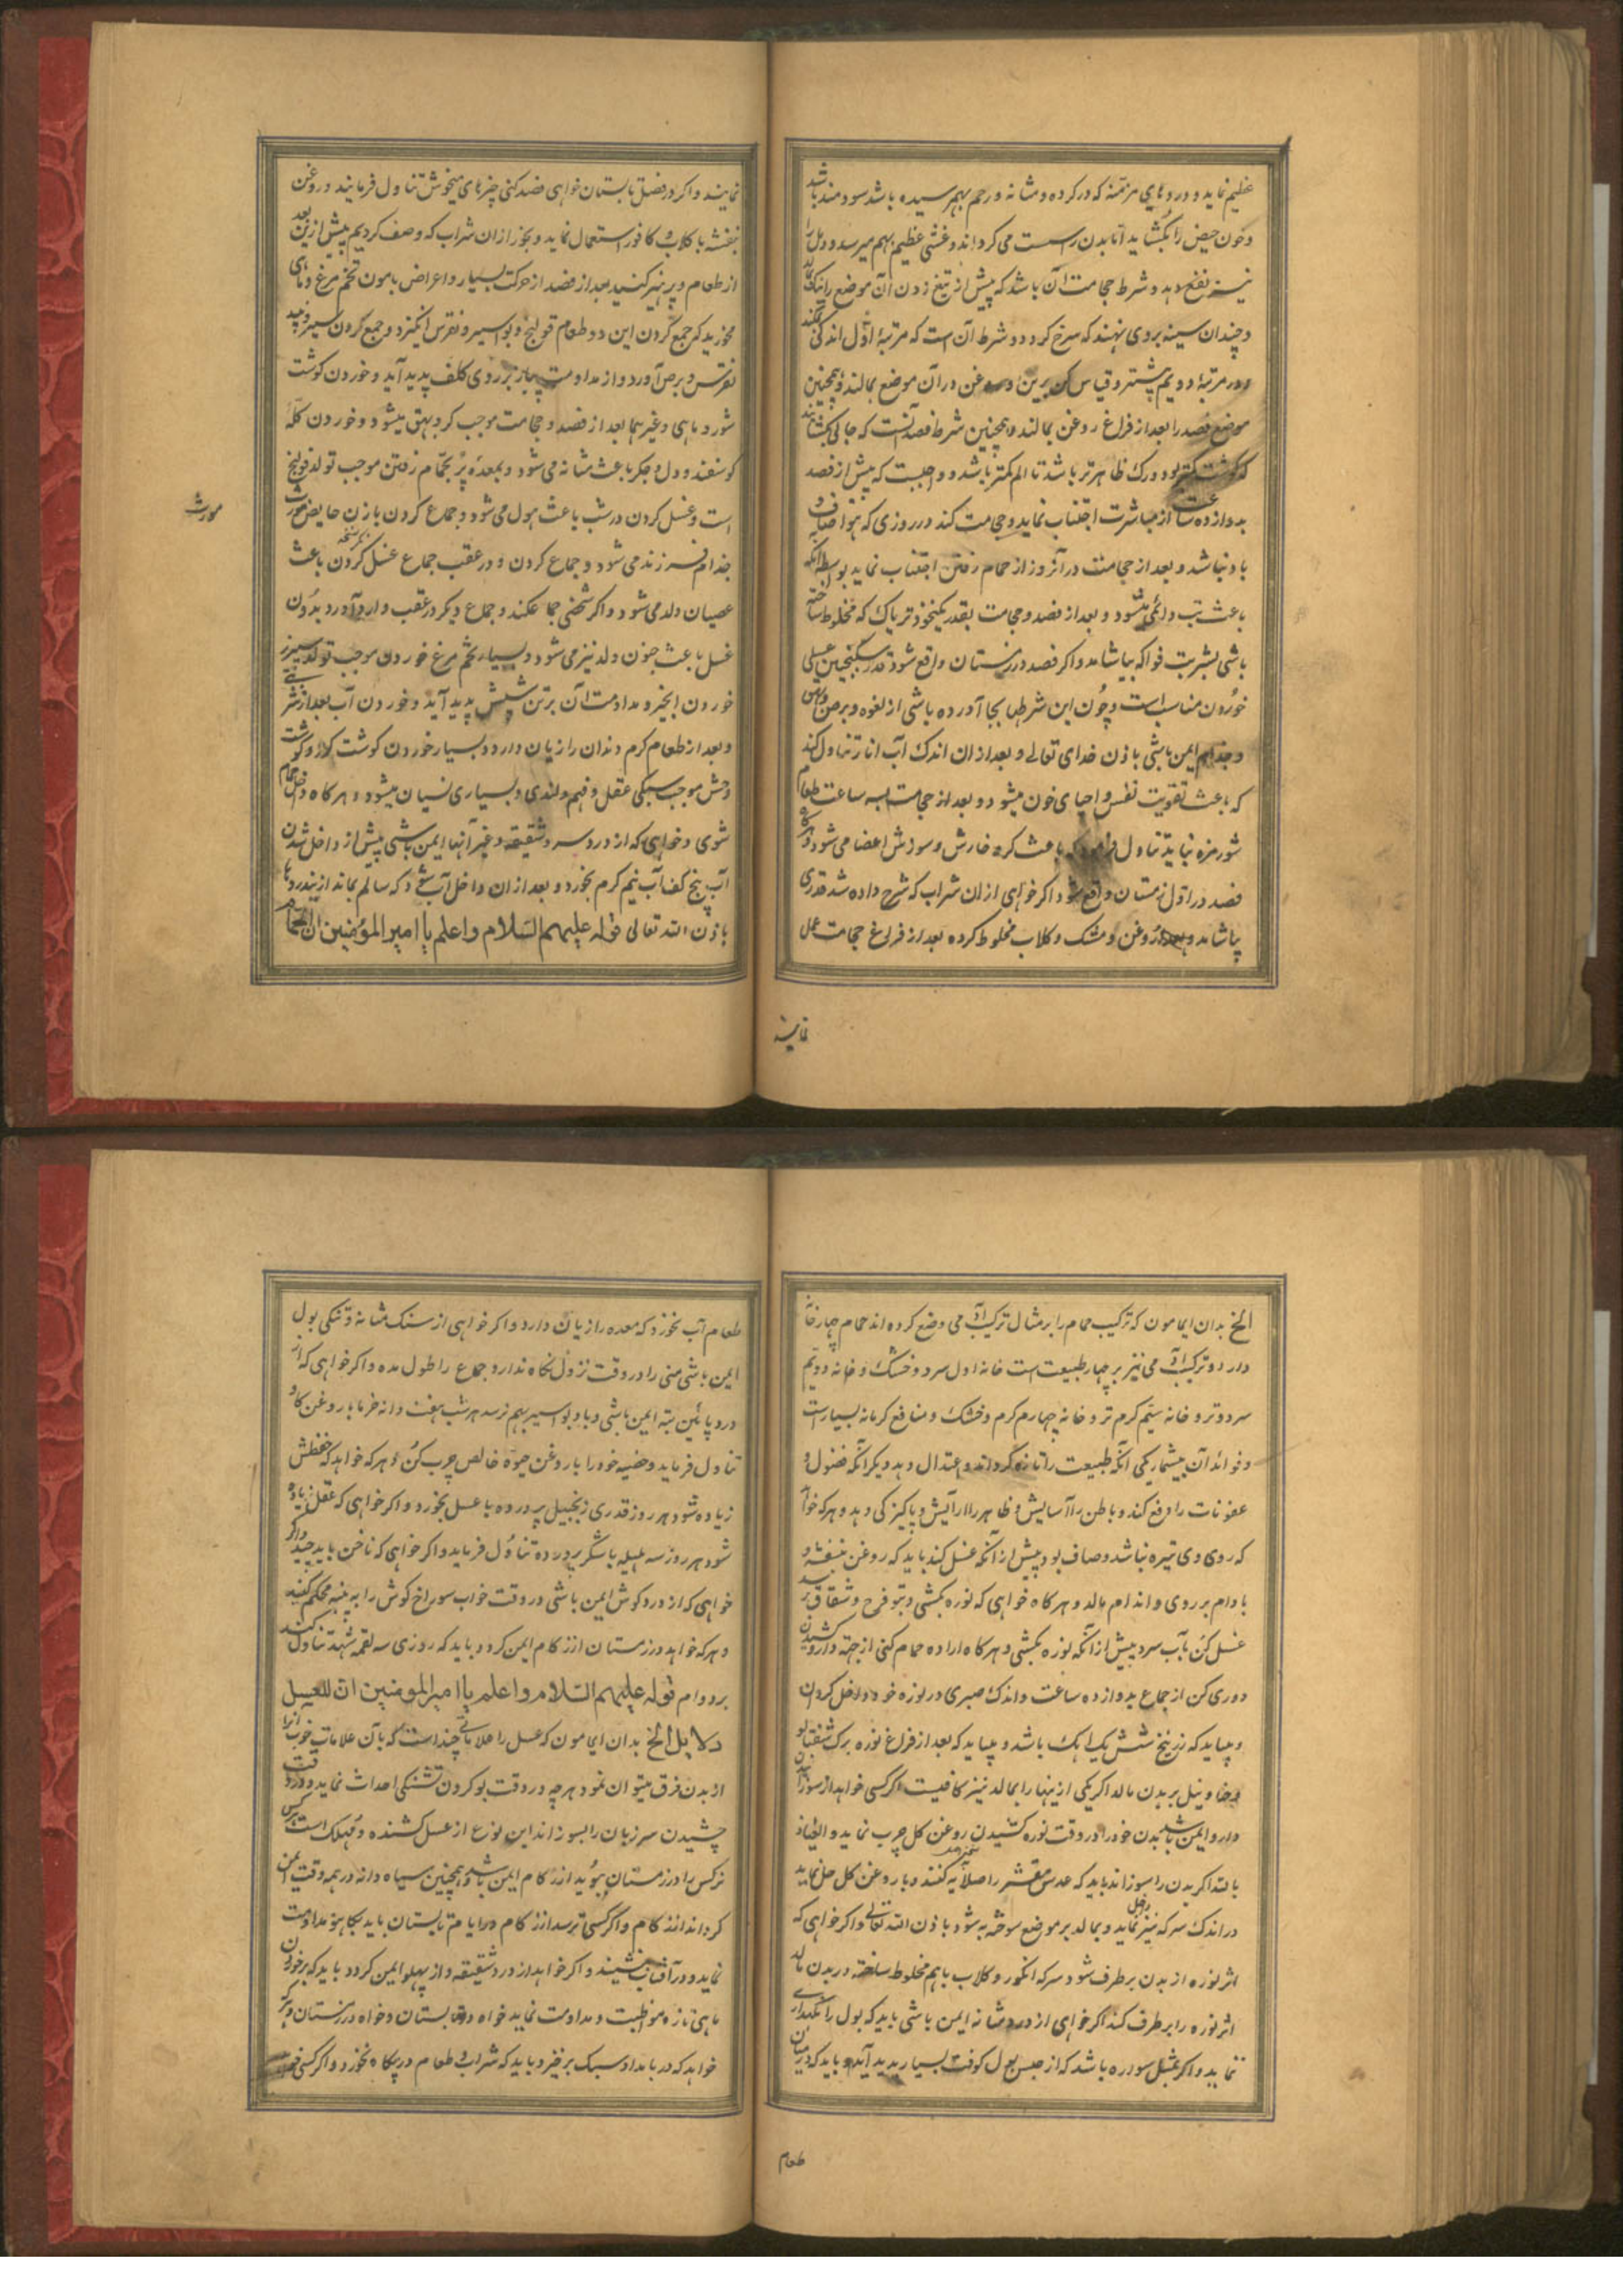 عظیم نماید و دردهای مزمنه که در کرده و مثانه و رحم بهم رسیده باشد سودمند باشد
و خون حیض را بکشاید اما بدن را سست می کرداند و غشی عظیم بهم میرسد و دمل را
نیز نفع دهد و شرط حجامت آن باشد که پیش از تیغ زدن آن موضع را نیک بمالد
و چندان سینه بروی نهند که سرخ کردد و شرط آن است که مرتبهٔ اول اندکی مکند
و در مرتبهٔ دویم پشتر و قیاس کن برین و روغن در آن موضع بمالند و همچنین
موضع فصد را بعد از فراغ روغن بمالند و همچنین شرط فصد آنست که جائی بکشایند
که کوشت کمتر بود و رک ظاهرتر باشد تا الم کمتر باشد و واجبست که پیش از فصد
بدوازده ساعت از مباشرت اجتناب نماید و حجامت کند در روزی که هوا صاف و
باد نباشد و بعد از حجامت در آنروز از حمام رفتن اجتناب نماید بواسطه آنکه
باعث تب دائمی میشود و بعد از فصد و حجامت بقدر یکنخود تریاک که مخلوط ساخته
باشی بشربت فواکه بیاشامد و اکر فصد در زمستان واقع شود قدری سکنجبین عسلی
خوردن مناسب است و چون این شرطها بجا آورده باشی از لغوه و برص و بهق
و جذام ایمن باشی باذن خدای تعالی و بعد از ان اندک آب انار تناول کند
که باعث تقویت نفس و احیای خون میشود و بعد از حجامت سه ساعت طعام
شور مزه نباید تناول فرمود که باعث کر و خارش و سوزش اعضا می شود و اکر
فصد در اول زمستان واقع شود اکر خواهی از ان شراب که شرح داده شد قدری
بیاشامد و بعد از روغن و مشک و کلاب مخلوط کرده بعد از فراغ حجامت عمل
نمایند
نمایند و اکر در فصل تابستان خواهی فصد کنی چیزهای میخوش تناول فرمایند و روغن
بنفشه با کلاب و کافور استعمال نماید و بخور از ان شراب که وصف کردیم پیش ازین بعد
از طعام و پرهیز کنید بعد از فصد از حرکت بسیار و اعراض بامون تخم مرغ و ماهی
مخورید که جمع کردن این دو طعام قولنج و بواسیر و نقرس انکیزد و جمع کردن سیر و پنیر
نقرس و برص آورد و از مداومت پیاز بر روی کلف پدید آید و خوردن کوشت
شور و ماهی و غیرهما بعد از فصد و حجامت موجب کر و بهق میشود و خوردن کلهٔ
کوسفند و دل و جکر باعث مثانه می شود و بمعدهٔ پر بحمام رفتن موجب تولد قولنج
است و غسل کردن در شب باعث هول می شود و جماع کردن با زن حایض مورث
مورث
جذام فرزند می شود و جماع کردن و در عقب جماع غسل کردن باعث
عصیان ولد می شود و اکر شخصی جماع کند و جماع دیکر در عقب وارد آورد بدون
غسل باعث جنون ولد نیز می شود و بسیار تخم مرغ خوردن موجب تولد سپرز
خوردن انجیر و مداومت آن بر تن شپش پدید آید و خوردن آب بعد از شیرینی
و بعد از طعام کرم دندان را زیان دارد و بسیار خوردن کوشت کاو و کوشت
وحش موجب سبکی عقل و فهم و کندی و بسیاری نسیان میشود و هرکاه داخل حمام
شوی و خواهی که از درد سر و شقیقه و غیر آنها ایمن باشی پیش از داخل شدن
آب پنج کف آب نیم کرم بخورد و بعد از ان داخل آب شود که سالم بماند ازیندردها
باذن الله تعالی قوله علیهم السلام واعلم یا امیر المؤمنین ان الحمام
الخ بدان ایمامون که ترکیب حمام را بر مثال ترکیب آدمی وضع کرده اند حمام چهار خانه
دارد و ترکیب آدمی نیز بر چهار طبیعت است خانه اول سرد و خشک و خانه دویم
سرد و تر و خانه سیم کرم تر و خانه چهارم کرم و خشک و منافع کرمابه بسیار است
و فوائد آن بیشمار یکی آنکه طبیعت را تازه کرداند و اعتدال دهد و دیکر آنکه فضول و
عفونات را دفع کند و باطن را آسایش و ظاهر را آرایش و پاکیزکی دهد و هرکه خواهد
که روی وی تیره نباشد و صاف بود پیش از آنکه غسل کند باید که روغن بنفشه و
بادام بر روی و اندام مالد و هرکاه خواهی که نوره بکشی و بتو قرح و شقاق نرسد
غسل کن بآب سرد پیش از آنکه نوره بکشی و هرکاه اراده حمام کنی از جهة دارو کشیدن
دوری کن از جماع بدوازده ساعت و اندک صبری در نوره خود داخل کردان
و بباید که زرنیخ شش یک آهک باشد و بباید که بعد از فراغ نوره برک شفتالو
و حنا و نیل بر بدن مالد اکر یکی از ینها را بمالد نیز کافیست اکر کسی خواهد از سوزاندن
دارو ایمن باشد بدن خود را در وقت نوره کشیدن روغن کل چرب نماید و العیاذ
بالله اکر بدن را سوزاند باید که عدس مقشر را صلایه کنند و با روغن کل حل نماید
در اندک سرکه نیز داخل نماید و بمالد بر موضع سوخته به شود باذن الله تعالی و اکر خواهی که
اثر نوره از بدن برطرف شود سرکه انکور و کلاب باهم مخلوط ساخته در بدن مالد
اثر نوره را برطرف کند اکر خواهی از درد مثانه ایمن باشی باید که بول را نکهداری
ننماید و اکر بمثل سواره باشد که از حبس بول کوفت بسیار پدید آید و باید که در میان
طعام
طعام آب نخورد که معده را زیان دارد و اکر خواهی از سنک مثانه و تنکی بول
ایمن باشی منی را در وقت نزول نکاه ندارد و جماع را طول مده و اکر خواهی که از
درد پائین تنه ایمن باشی و باد بواسیر بهم نرسد هر شب هفت دانه خرما با روغن کاو
تناول فرماید و خصیه خود را با روغن جیوهٔ خالص چرب کن و هرکه خواهد که حفظش
زیاده شود هر روز قدری زنجبیل پرورده با عسل بخورد و اکر خواهی که عقل زیاده
شود هر روز سه هلیله با شکر پرورده تناول فرماید و اکر خواهی که ناخن باید چید و اکر
خواهی که از درد کوش ایمن باشی در وقت خواب سوراخ کوش را به پنبه محکم کنید
و هرکه خواهد در زمستان از زکام ایمن کردد باید که روزی سه لقمه شهد تناول کند
بر دوام قوله علیهم السلام واعلم یا امیر المؤمنین ان للعسل
دلایل الخ بدان ایمامون که عسل را علاماتی چند است که بآن علامات خوب آنرا
از بدن فرق میتوان نمود هرچه در وقت بو کردن تشنکی احداث نماید و در وقت
چشیدن سر زبان را بسوزاند این نوع از عسل کشنده و مهلک است
نرکس را در زمستان ببوید از زکام ایمن باشد و همچنین سیاه دانه در همه وقت ایمن
کرداند از زکام و اکر کسی ترسد از زکام در ایام تابستان باید بکاهو مداومت
نماید و در آفتاب ننشیند و اکر خواهد از درد شقیقه و از پهلو ایمن کردد باید که بر خوردن
ماهی تازه مواظبت و مداومت نماید خواه در تابستان و خواه در زمستان و هرکه
خواهد که در بامداد سبک برخیزد باید که شراب و طعام در بیکاه نخورد و اکر کسی